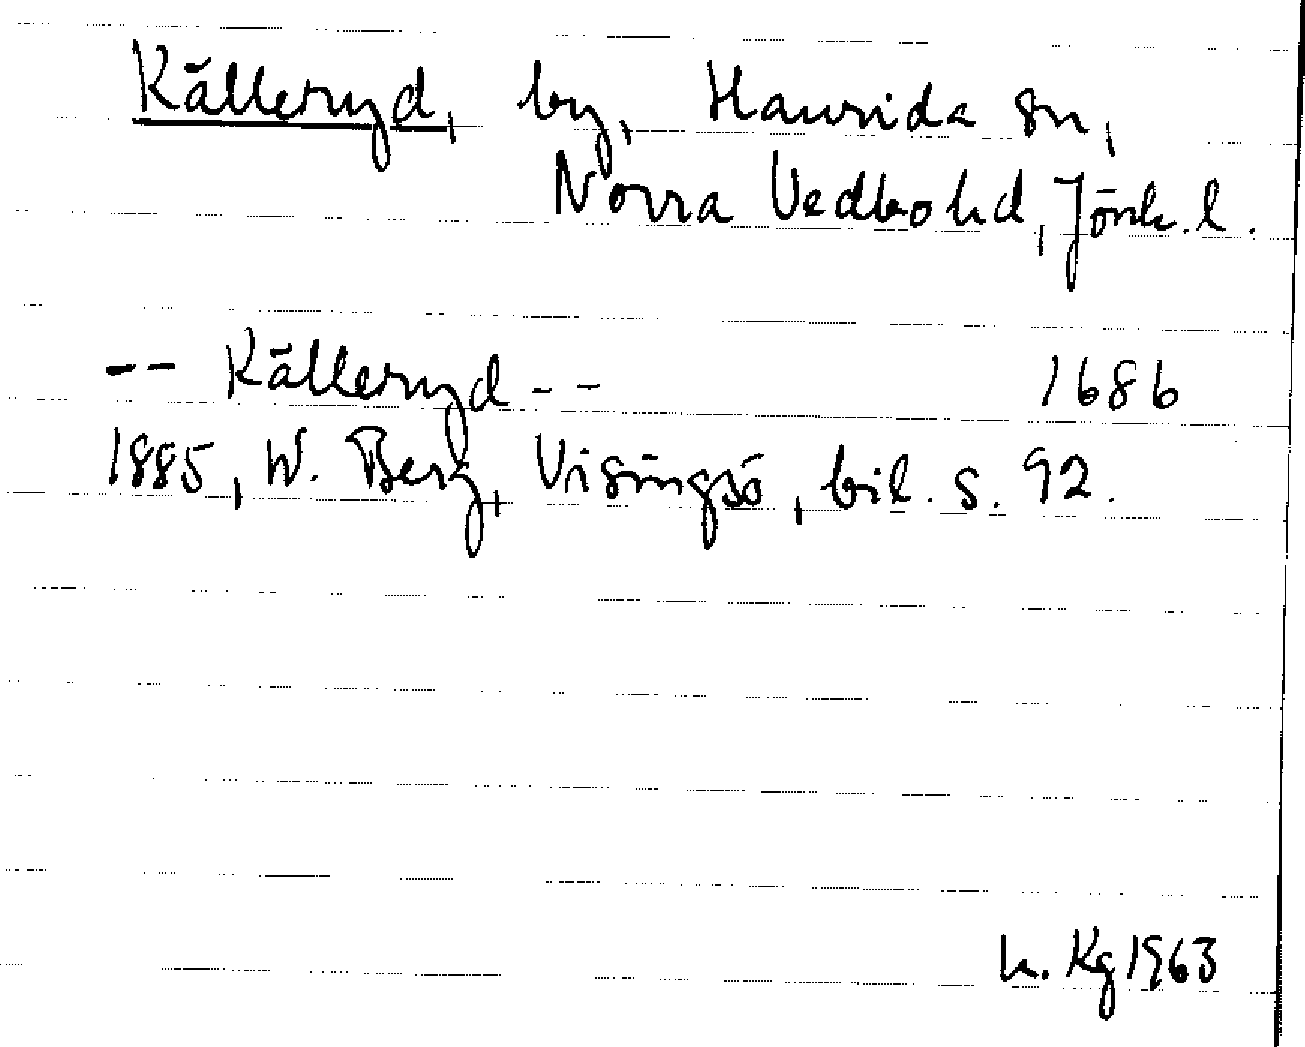 Källeryd, by, Haurida sn,
Norra Vedbo hd, Jönk. l.
-- Källeryd -- 1686
1885, W. Berg, Visingsö, bil. s. 92.
h. Kg 1963